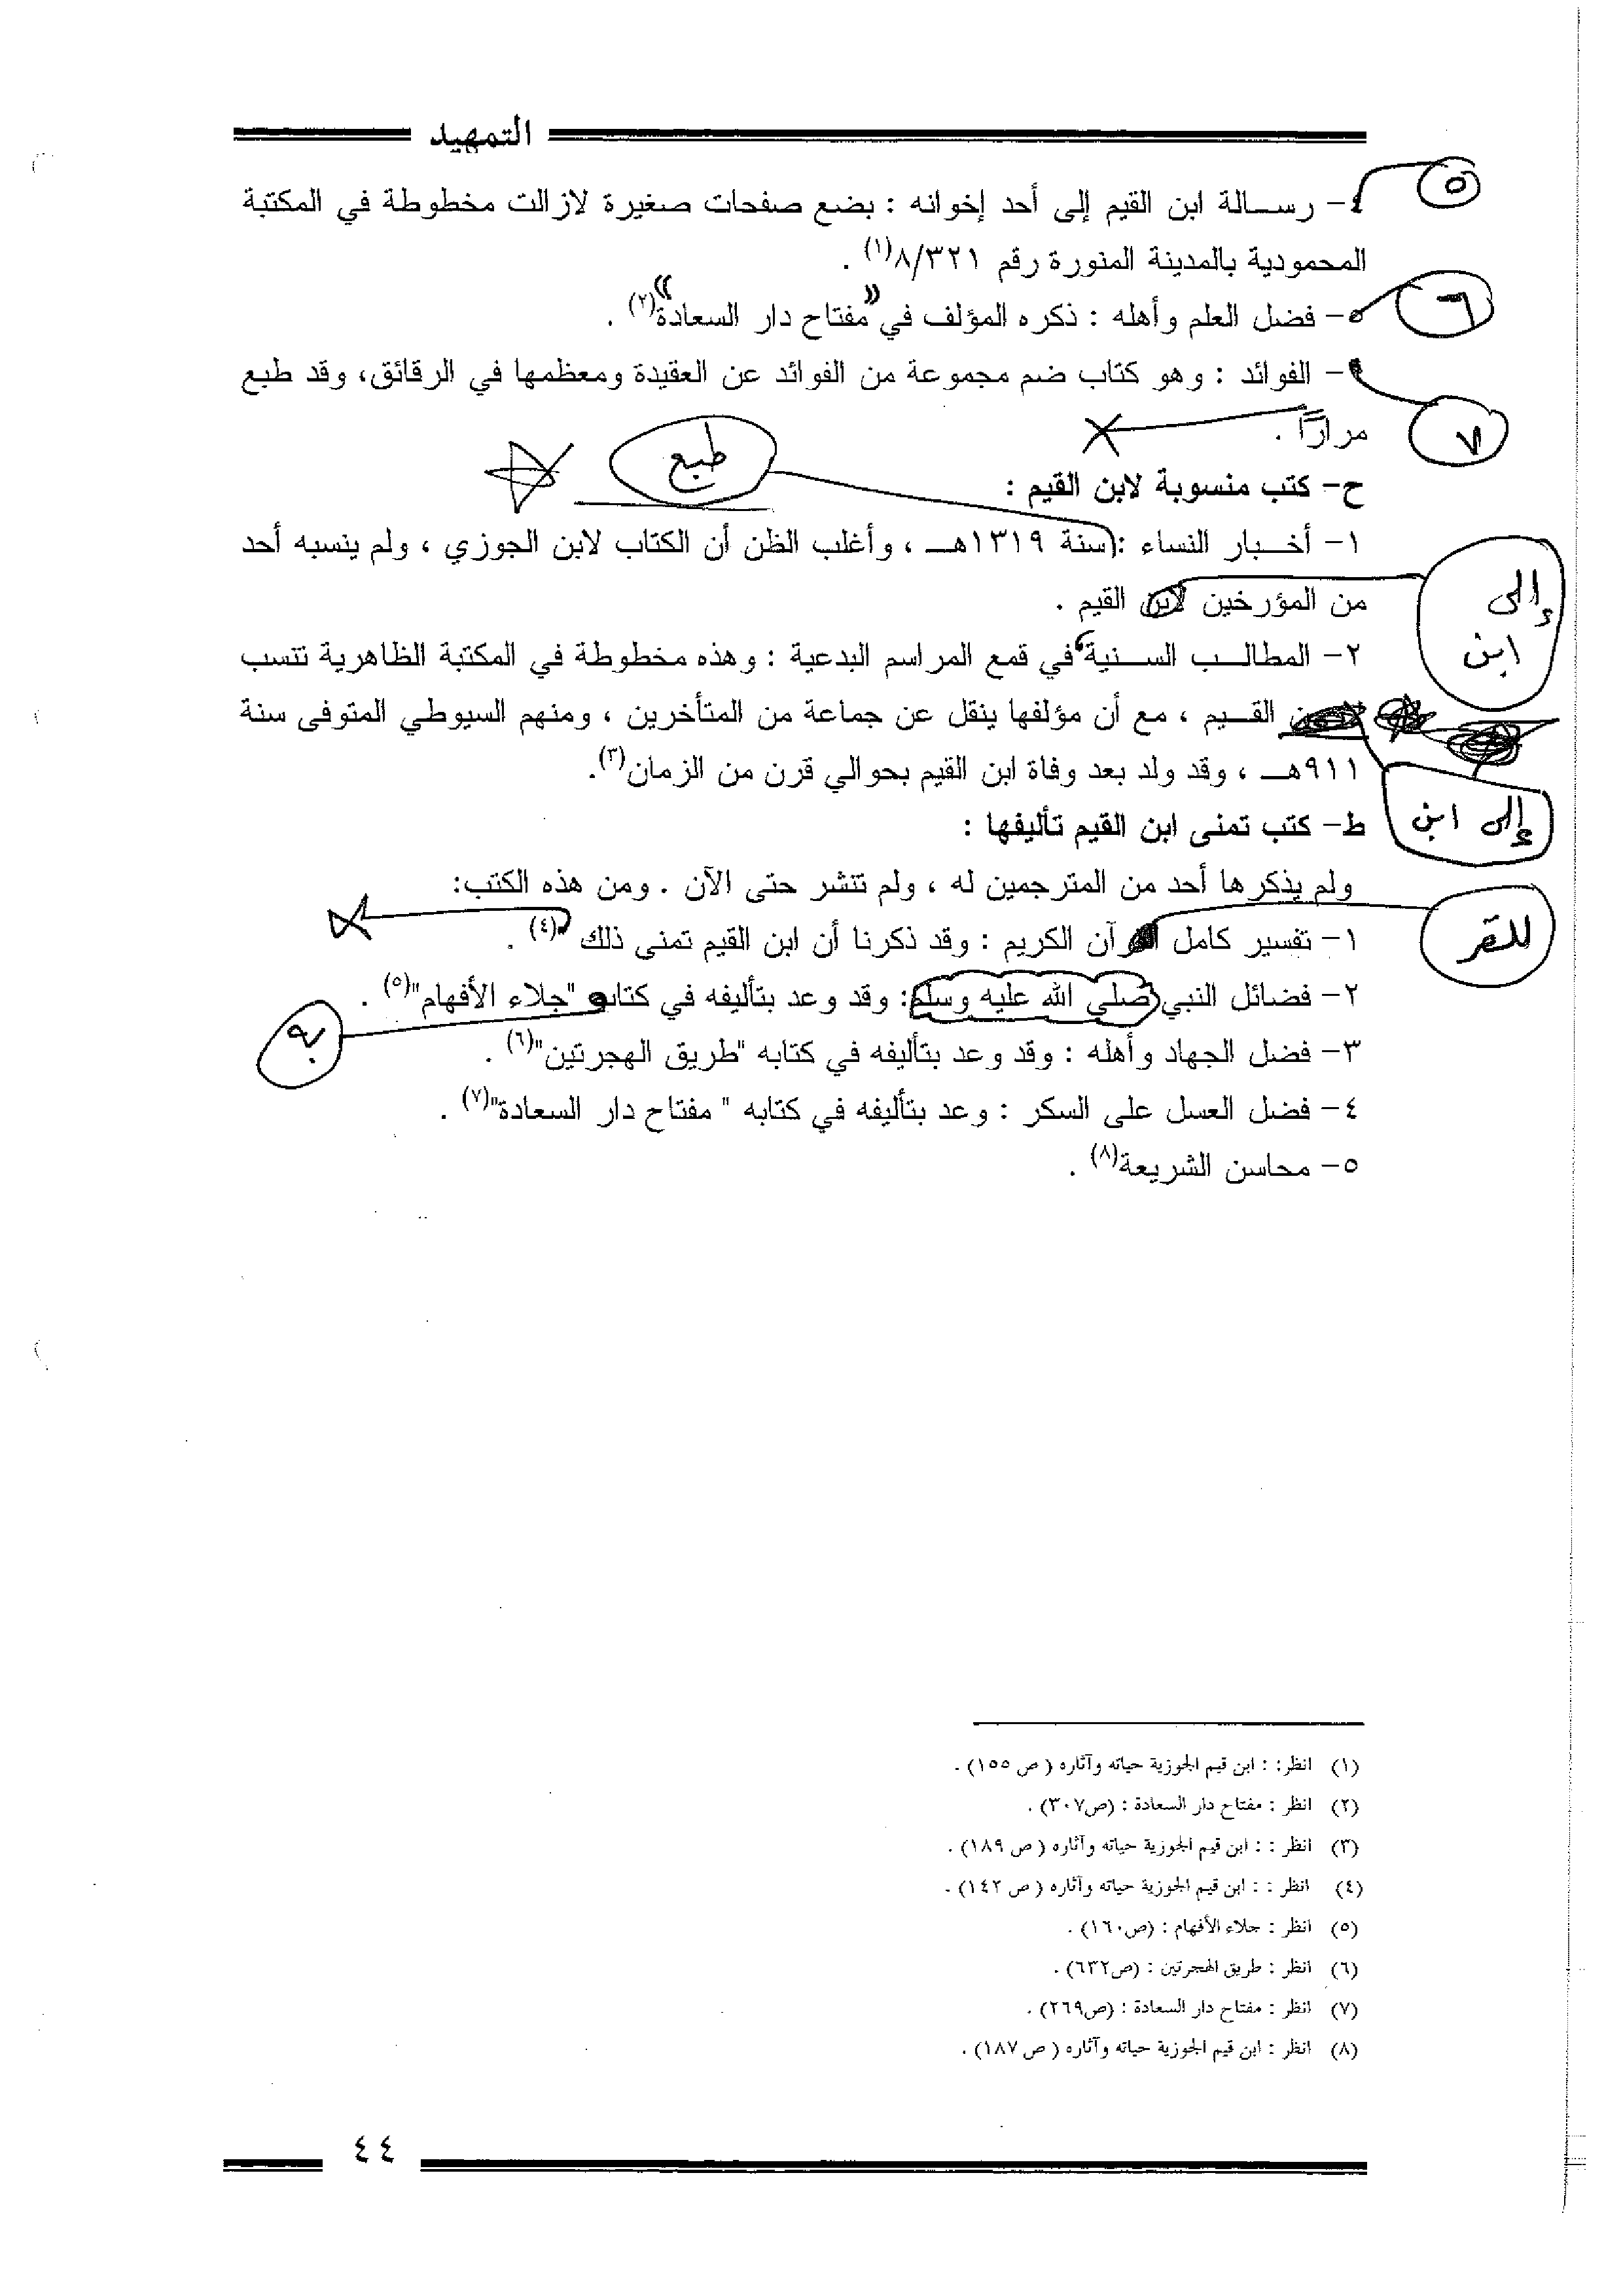 التمهيد
٤- رسالة ابن القيم إلى أحد إخوانه : بضع صفحات صغيرة لازالت مخطوطة في المكتبة
٥
المحمودية بالمدينة المنورة رقم ٨/٣٢١(١) .
٥- فضل العلم وأهله : ذكره المؤلف في «مفتاح دار السعادة»(٢) .
٦
- الفوائد : وهو كتاب ضم مجموعة من الفوائد عن العقيدة ومعظمها في الرقائق، وقد طبع
٧
مراراً .
طبع
ح- كتب منسوبة لابن القيم :
١- أخبار النساء : سنة ١٣١٩هـ ، وأغلب الظن أن الكتاب لابن الجوزي ، ولم ينسبه أحد
إلى
ابن
من المؤرخين لابن القيم .
٢- المطالب السنية في قمع المراسم البدعية : وهذه مخطوطة في المكتبة الظاهرية تنسب
القيم ، مع أن مؤلفها ينقل عن جماعة من المتأخرين ، ومنهم السيوطي المتوفى سنة
٩١١هـ ، وقد ولد بعد وفاة ابن القيم بحوالي قرن من الزمان(٣).
إلى ابن
ط- كتب تمنى ابن القيم تأليفها :
ولم يذكرها أحد من المترجمين له ، ولم تنشر حتى الآن . ومن هذه الكتب:
للقر
١- تفسير كامل آن الكريم : وقد ذكرنا أن ابن القيم تمنى ذلك (٤) .
٢- فضائل النبي صلى الله عليه وسلم: وقد وعد بتأليفه في كتابه "جلاء الأفهام"(٥) .
به
٣- فضل الجهاد وأهله : وقد وعد بتأليفه في كتابه "طريق الهجرتين"(٦) .
٤- فضل العسل على السكر : وعد بتأليفه في كتابه " مفتاح دار السعادة"(٧) .
٥- محاسن الشريعة(٨) .
(١) انظر: : ابن قيم الجوزية حياته وآثاره ( ص ١٥٥) .
(٢) انظر : مفتاح دار السعادة : (ص٣٠٧) .
(٣) انظر : : ابن قيم الجوزية حياته وآثاره ( ص ١٨٩) .
(٤) انظر : : ابن قيم الجوزية حياته وآثاره ( ص ١٤٢) .
(٥) انظر : جلاء الأفهام : (ص١٦٠) .
(٦) انظر : طريق الهجرتين : (ص٦٣٢) .
(٧) انظر : مفتاح دار السعادة : (ص٢٦٩) .
(٨) انظر : ابن قيم الجوزية حياته وآثاره ( ص ١٨٧) .
٤٤